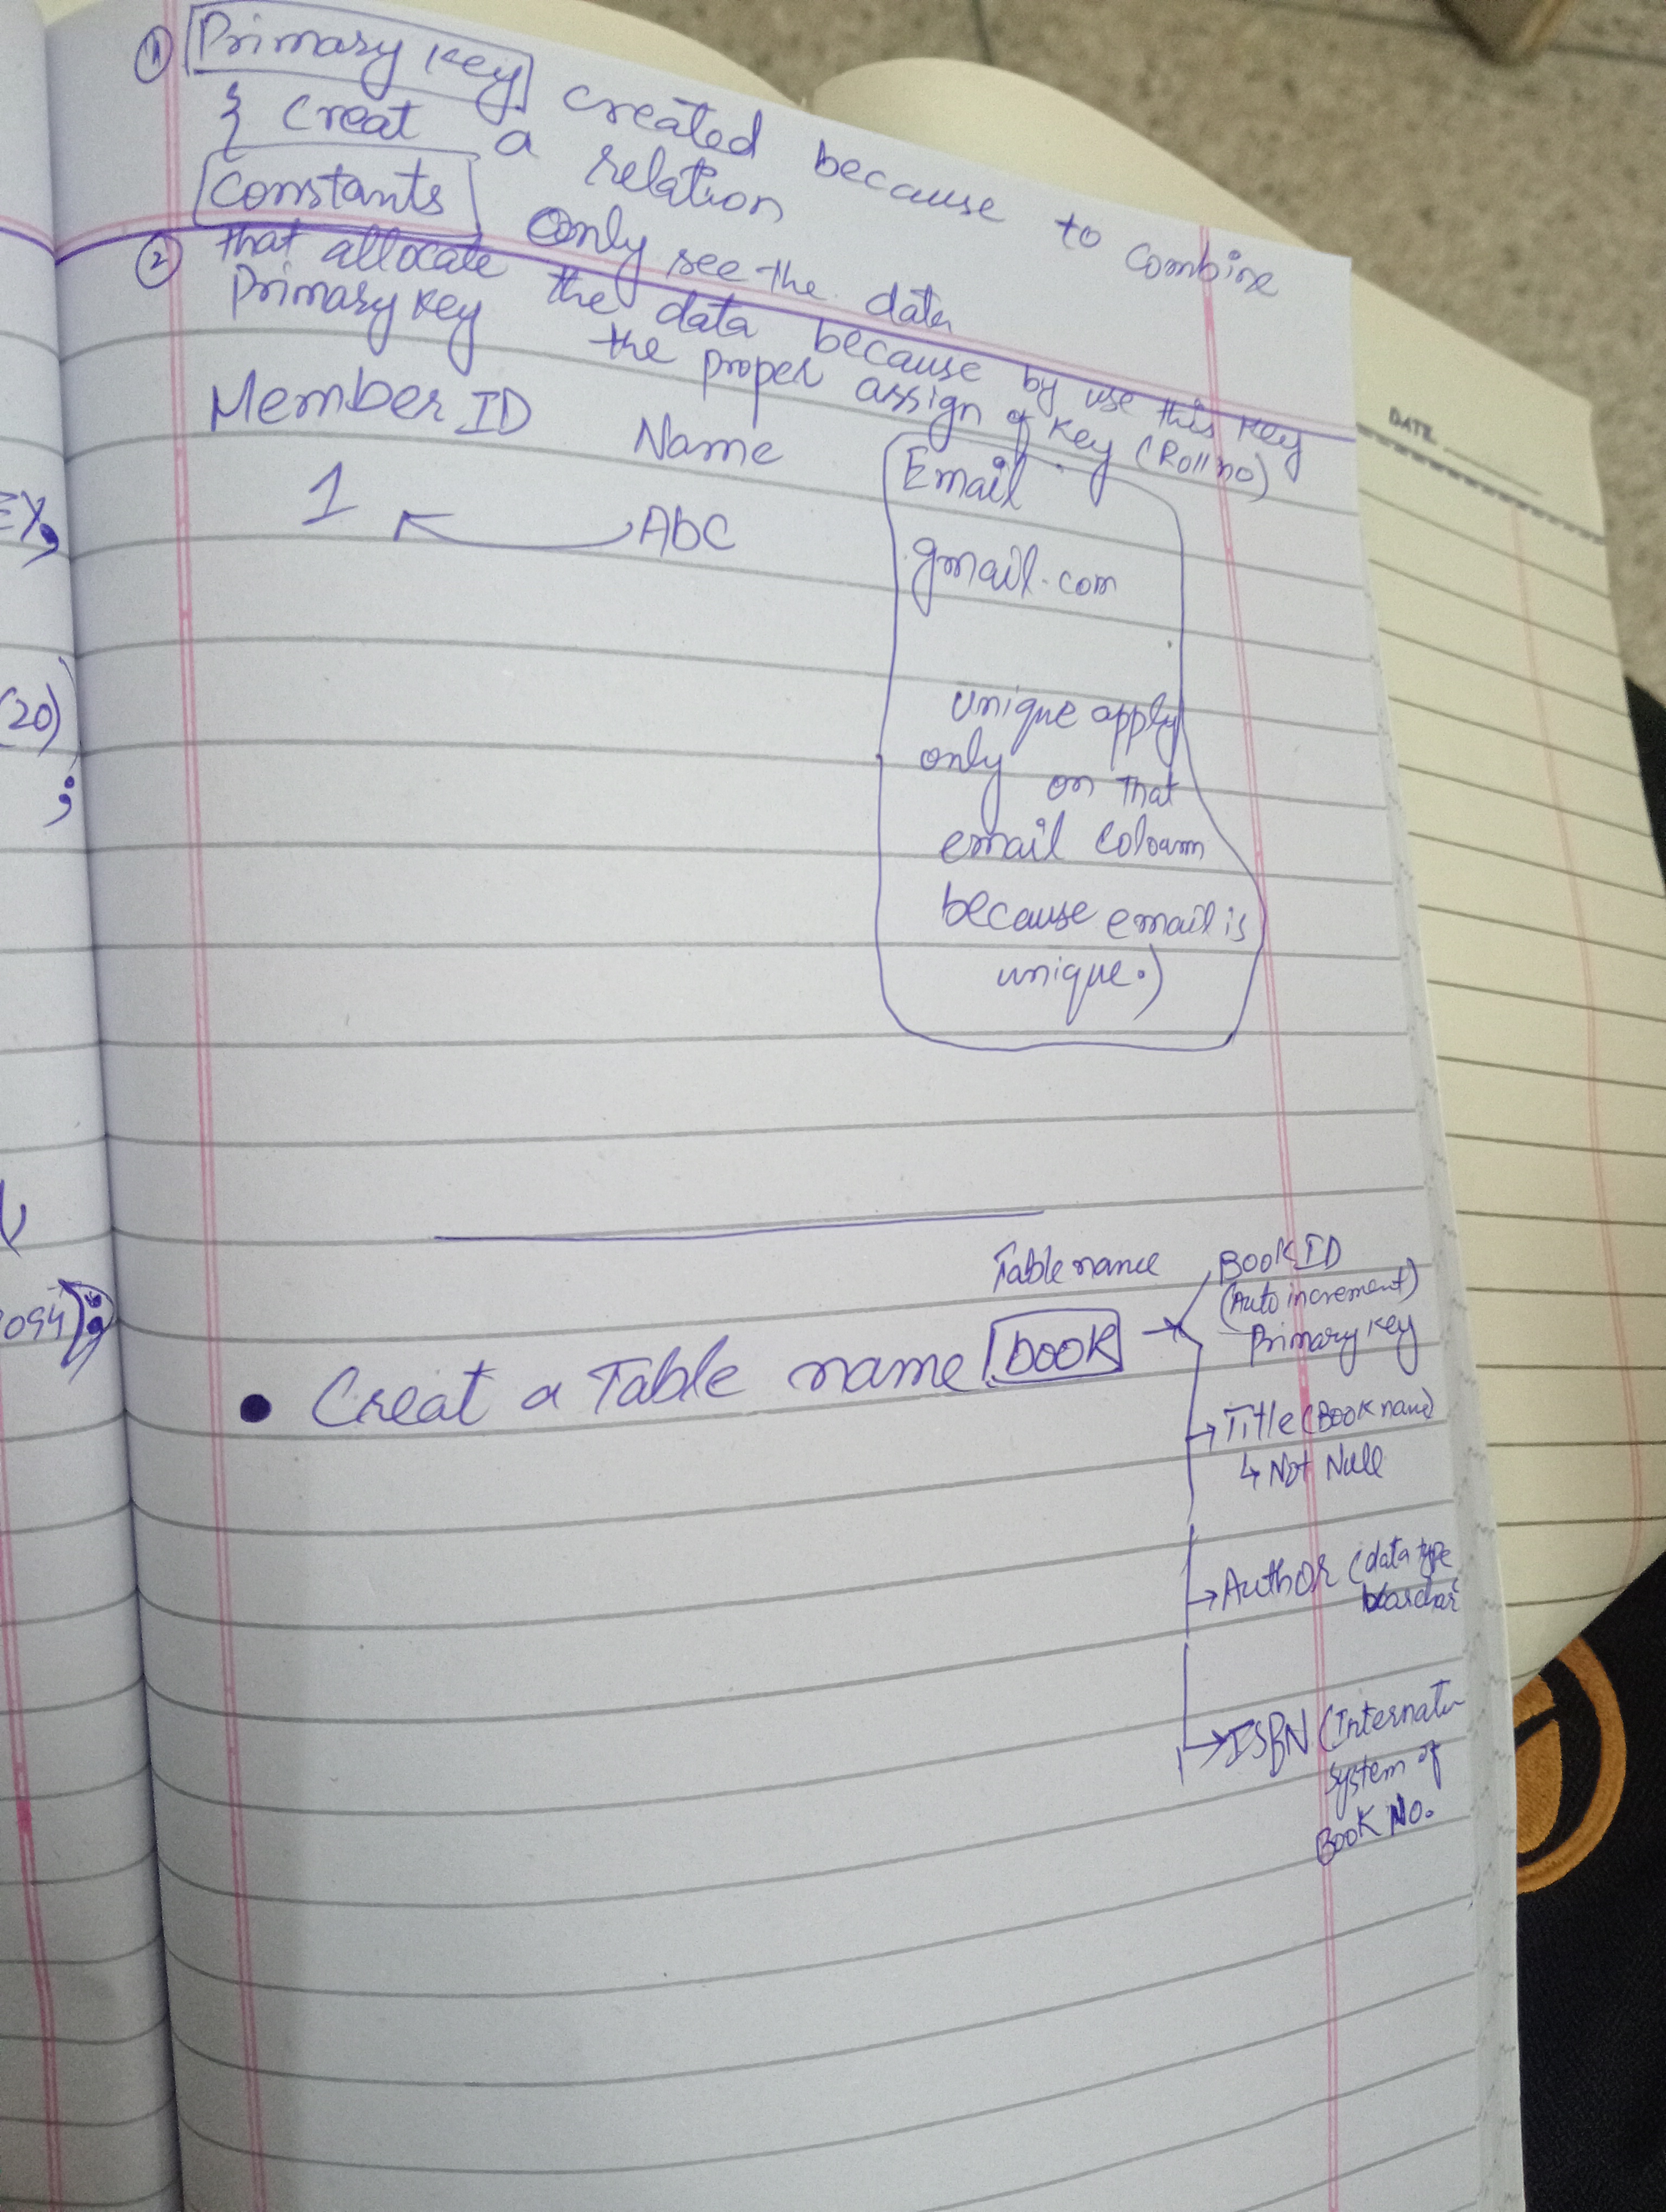 ① Primary Key created because to combine
{ Creat a relation
Constants Only see the data
② that allocate the data because by use this Key
Primary Key the proper assign of Key (Roll no)
Member ID Name Email
1 Abc gmail.com
unique apply
only on that
email Coloumn
because email is
unique.)
DATE
EX,
(20)
;
Table name
• Creat a Table name book
Book ID
(Auto increment)
Primary Key
Title (Book name)
Not Null
Author (data type
varchar
ISBN (Internatin
system of
Book No.